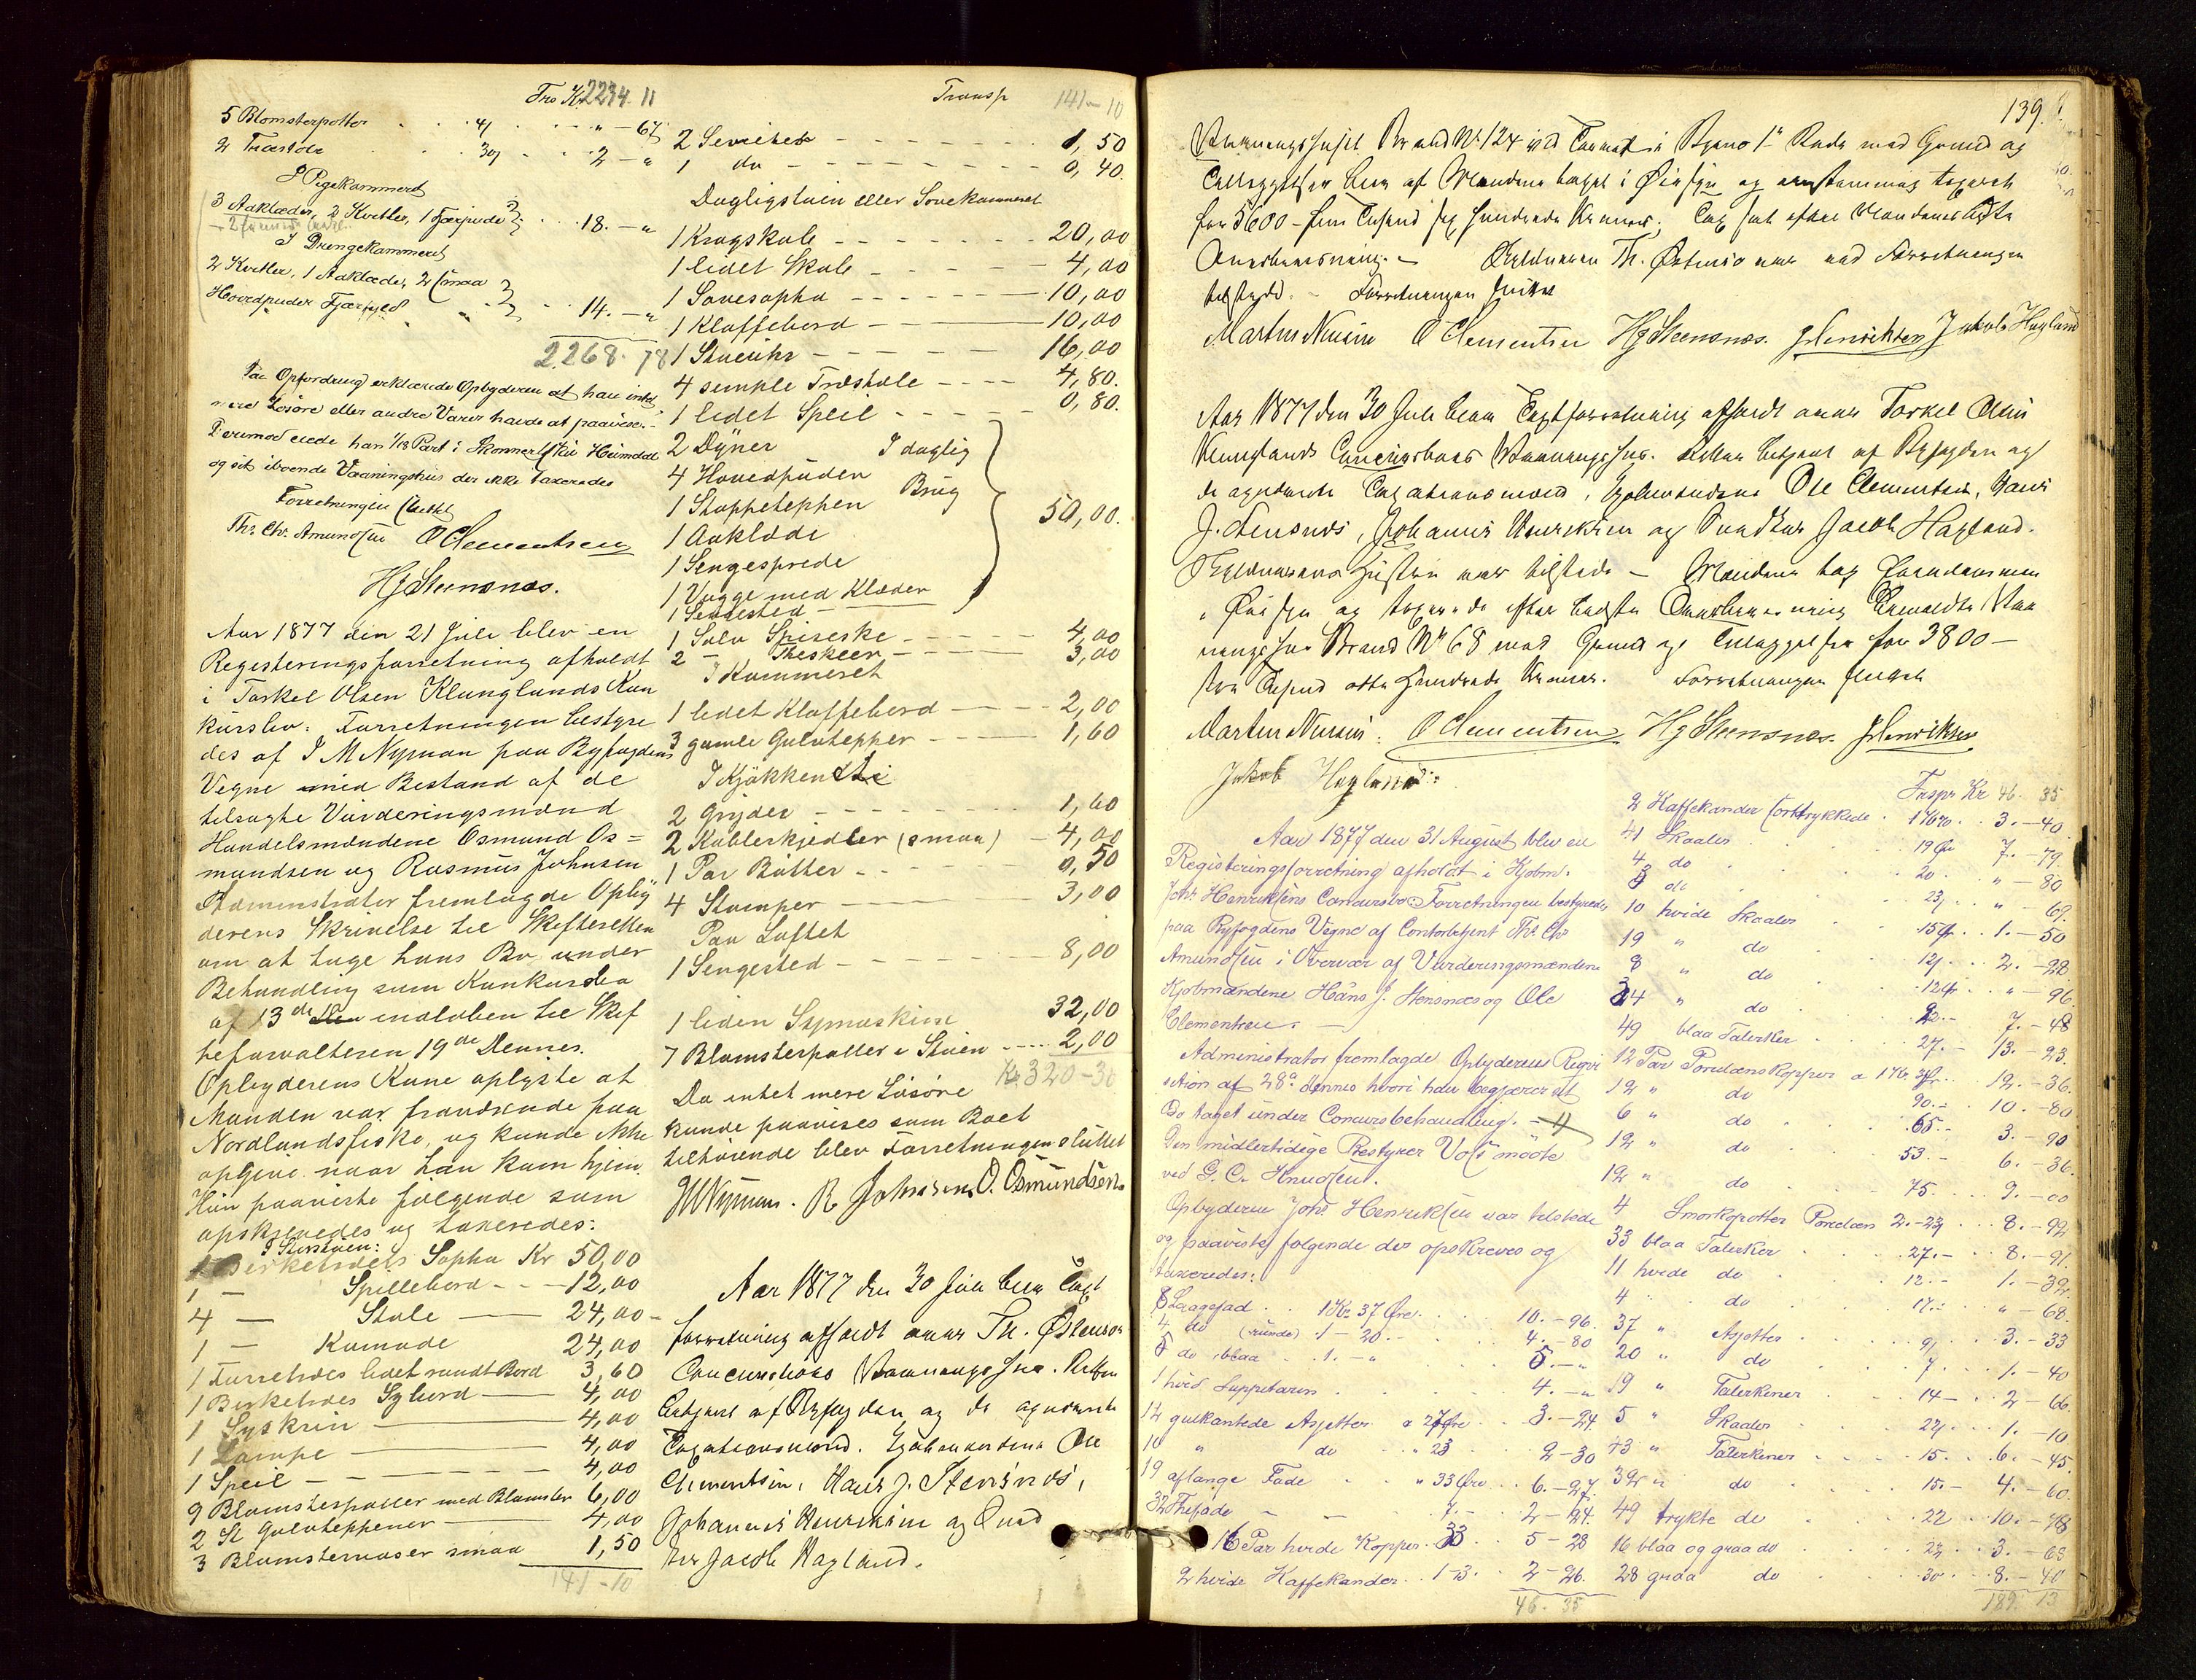 Trs Kr 2234. 11
5 Blomsterpotter 4/ " - 67
2 Træstole 30/ 2 - "
I Pigekammeret
3 Aaklæder, 2 Kvitler, 1 Fjærpude 18. - "
I Drengekammeret
2 Kvitler, 1 Aaklæde, 2 smaa
Hovedpuder Fjærfyld 14. - "
2268. 78
Paa Opfordring erklærede Opbyderen at han intet
mere Løsøre eller andre Varer havde at paavise. -
Derimod eiede han 1/13 Part i Skonnertskib Heimdal
og sit iboende Vaaningshus der ikke taxeredes
Forretningen sluttet
Ths. Chr. Amundsen O Clementsen
HJ Steensnæs.
Aar 1877 den 21 Juli blev en
Registeringsforretning afholdt
i Torkel Olsen Klunglands Kon
kursbo. Forretningen bestyre
des af J M Nyman paa Byfogdens
Vegne med Bestand af de
tilsagte Vurderingsmænd
Handelsmændene Osmund Os=
mundsen og Rasmus Johnsen
Administrator fremlagde Opby
derens Skrivelse til Skifteretten
om at tage hans Bo under
Behandling som Konkursbo
af 13de indløben til Skif
teforvalteren 19de Dennes.
Opbyderens Kone oplyste at
Manden var fraværende paa
Nordlandsfiske, og kunde ikke
opgive naar han kom hjem.
Hun paaviste følgende som
opskrevedes og taxeredes:
I Storstuen:
1 Birketræes Sopha Kr 50,00
1 - Spillebord - - 12,00
4 - Stole - 24,00
1 - Komode 24,00
1 Furretræes lidet rundt Bord 3,60
1 Birketræes Sybord - 4,00
1 Syskrin - 4,00
1 Lampe - 4,00
1 Speil - 4,00
9 Blomsterpotter med Blomster 6,00
2 St Gulvteppener - 4,00
3 Blomstervaser smaa 1,50
141 - 10
Transp 141 - 10
2 Servietter 1,50
1 do 0,40.
Dagligstuen eller Sovekammeret
1 Kragskab 20,00
1 lidet Skab 4,00
1 Sovesopha 10,00
1 Klaffebord 10,00
1 Stueuhr 16,00
4 simple Træstole 4,80.
1 lidet Speil 0,80.
2 Dyner I daglig
4 Hovedpuder Brug
1 Stoppeteppen 50,00.
1 Aaklæde
1 Sengesprede
1 Vugge med Klæder
1 Sengested -
1 Sølv Spiseske 4,00
2 - Theskeer 3,00
I Kammeret
1 lidet Klaffebord 2,00
3 gamle Gulvtepper 1,60
I Kjøkkenet
2 Gryder 1,60
2 Kobberkjedler (smaa) 4,00
1 Par Bøtter 0,50
4 Stamper 3,00
Paa Loftet
1 Sengested 8,00
1 liden Symaskine 32,00
7 Blomsterpotter i Stuen 2,00
Kr 320-30
Da intet mere Løsøre
kunde paavises som Boet
tilhørende blev Forretningen sluttet
JMNyman. R Johnsen O. Osmundsen
Aar 1877 den 30 Juli blev Taxt
forretning afholdt over Th. Østensø
Concursboes Vaaningshus. Retten
betjent af Byfogden og de opnævnte
Taxationsmænd. Kjøbmændene Ole
Clementsen, Hans J. Stensnæs,
Johannes Henriksen og Sned
ker Jacob Hagland.
139.
Vaaningshuset Brand No 124 ved Torvet i Byens 1ste Rode med Grund og
Tilbyggelser blev af Mændene taget i Øiesyn og eenstemmig taxeret
for 5600 - fem Tusend sex Hundrede Kroner, Tax sat efter Mændenes bedste
Overbeviisning. - Opbyderen Th. Østensø var ved Forretningen
tilstede. - Forretningen sluttet
Martin Nissen O Clementsen HJ Steensnæs. J Henriksen Jakob Hagland
Aar 1877 den 30 Juli blev Taxtforretning afholdt over Torkel Olsen
Klunglands Concursboes Vaaningshus. Retten betjent af Byfogden og
de opnævnte Taxationsmænd, Kjøbmændene Ole Clementsen, Hans
J. Stensnæs, Johannes Henriksen og Snedker Jacob Hagland.
Opbyderens Hustru var tilstede - Mændene tog Eiendommen
i Øiesyn og taxerede efter bedste Overbeviisning bemeldte Vaa
ningshus Brand No 68 med Grund og Tilbyggelser for 3800 -
tre Tusend otte Hundrede Kroner. Forretningen sluttet
Martin Nissen. O Clementsen HJ Steensnæs. J Henriksen
Jakob Hagland
Aar 1877 den 31 August blev en
Registeringsforretning afholdt i Kjøbm.
Johs Henriksens Concursbo. Forretningen bestyredes
paa Byfogdens Vegne af Contorbetjent Ths. Chr.
Amundsen i Overvær af Vurderingsmændene
Kjøbmændene Hans J. Stensnæs og Ole
Clementsen. -
Administrator fremlagde Opbyderens Reqvi
sition af 28de dennes hvori han begjærer sit
Bo taget under Concursbehandling. -
Den midlertidige Bestyrer Voss mødte
ved G. C. Knudsen.
Opbyderen Johs Henriksen var tilstede
og paaviste følgende der opskreves og
taxeredes:
8 Laagefad 1 Kr 37 Øre 10. - 96.
4 do (runde) 1 - 20. - 4. - 80
5 do blaa 1. - " 5. - "
1 hvid Suppeterin 4. - "
12 gulkantede Asjetter a 27 Øre 3. - 24.
10 " do " 23 2 - 30
19 aflange Fade " 33 Øre 6. - 27.
32 Thefade 7. - 2 - 24.
16 Par hvide Kopper 33 5 - 28
2 hvide Kaffekander 1 - 13. 2 - 26.
46. 35
Trspr Kr 46. 35
2 Kaffekander sorttrykkede 1 Kr 70 3. - 40
41 Skaaler 19 Øre 7. - 79.
4 do 20 " - 80
3 do 23/ " 69.
10 hvide Skaaler 15 Ør 1. - 50
19 " do 12/ 2. - 28
8 " do 12 Ør " - 96.
34 " do 22. - 7. - 48
49 blaa Talerker 27. - 13. - 23.
12 Par Porcelæns Kopper a 1 Kr 3 Ør 12. - 36.
12 " do 90. - 10. - 80
6 " do 65. - 3. - 90
12 " do 53. - 6. - 36.
12 " do 75. 9. - 00
4 Smørkopotter Porcelæn 2. - 23 8. - 92
33 blaa Talerker 27. - 8. - 91.
11 hvide do 12. - 1. - 32.
4 " do 17. - " - 68.
37 " Asjetter 9/ 3. - 33
20 " do 7 1. - 40
19 " Talerkener 14 - 2 - 66.
5 " Skaaler 22/ 1. - 10
43 " Talerkener 15. 6. - 45.
32 " do 15. - 4. - 60.
49 trykte do 22 10. - 78
16 blaa og graa do 23 3. - 68
28 graa do 30 8. - 40
189. 13